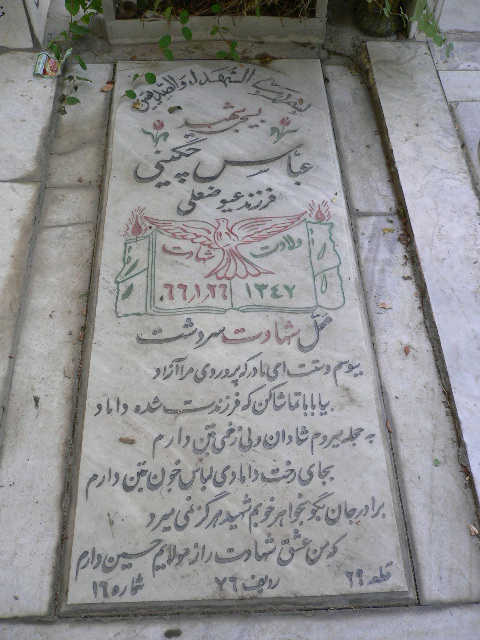 بسم رب الشهداء والصدیقین
بسیجی شهید
عباس چگینی
فرزند عیوضعلی
ولادت شهادت
۱۳۴۷ ۶۶/۱/۶۶
محل شهادت سردشت
ببوسم دستت ای مادر که پروردی مرا آزاد
بیا بابا تماشا کن که فرزندت شده داماد
به حجله میروم شادان ولی زخمی بتن دارم
بجای رخت دامادی لباس خون بتن دارم
برادر جان بگو بخواهر خوبم شهید هرگز نمی میرد
که من عشق شهادت را ز مولایم حسین دارم
قطعه ۲۹ ردیف ۷۶ شماره ۱۶